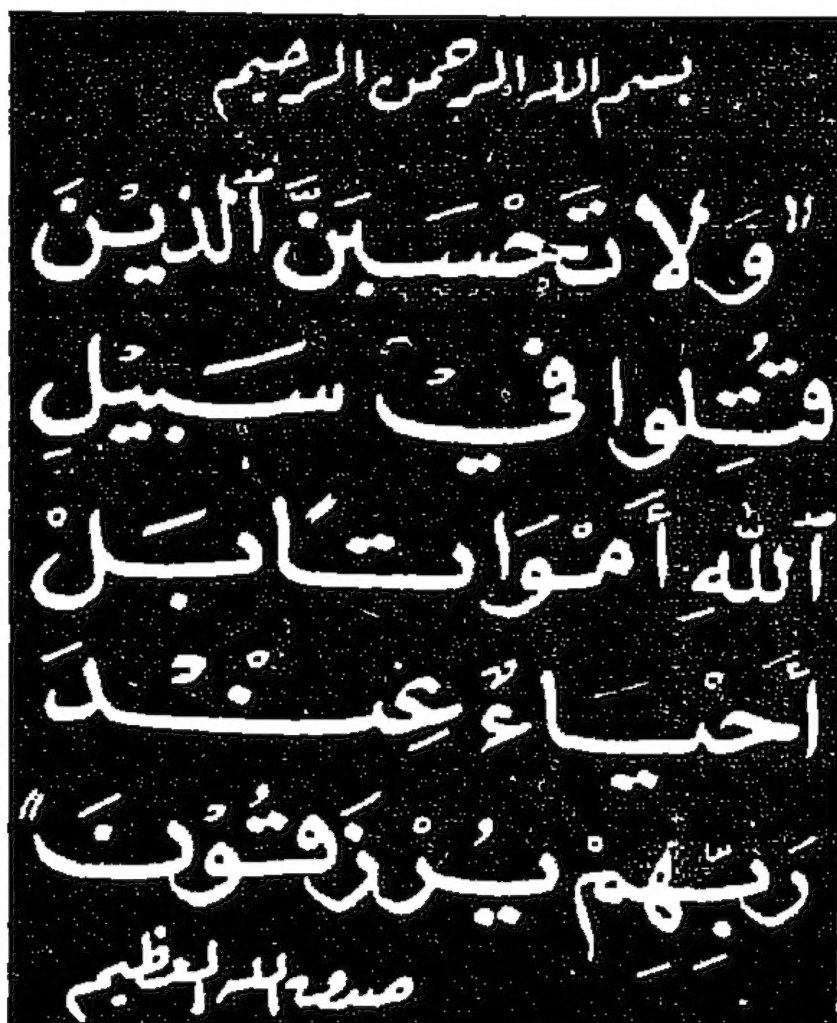 بسم الله الرحمن الرحيم
"وَلا تَحْسَبَنَّ ٱلَّذِيْنَ
قُتِلوا فِيْ سَبِيْلِ
ٱللّٰهِ أَمْوَاتَا بَلْ
أَحْيَاءٌ عِنْدَ
رَبِّهِمْ يُرْزَقُوْنَ"
صدق الله العظيم